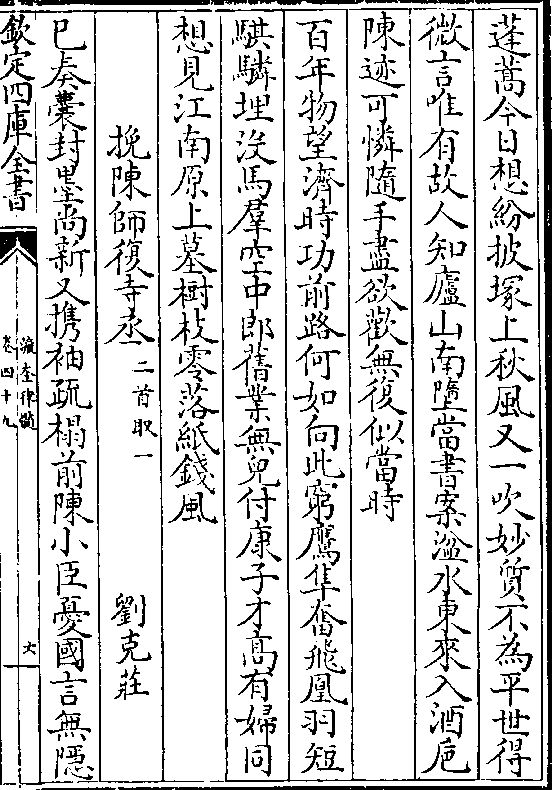 蓬蒿今日想紛披塚上秋風又一吹妙質不為平世得
微言唯有故人知廬山南墮當書案湓水東來入酒巵
陳迹可憐隨手盡欲歡無復似當時
百年物望濟時功前路何如向此窮鷹隼奮飛凰羽短
騏驎埋没馬羣空中郎舊業無兒付康子才髙有婦同
想見江南原上墓樹枝零落紙錢風
挽陳師復寺丞二首取一 劉克莊
已奏囊封墨尚新又携袖疏榻前陳小臣憂國言無隱
欽定四庫全書
瀛奎律髓
卷四十九